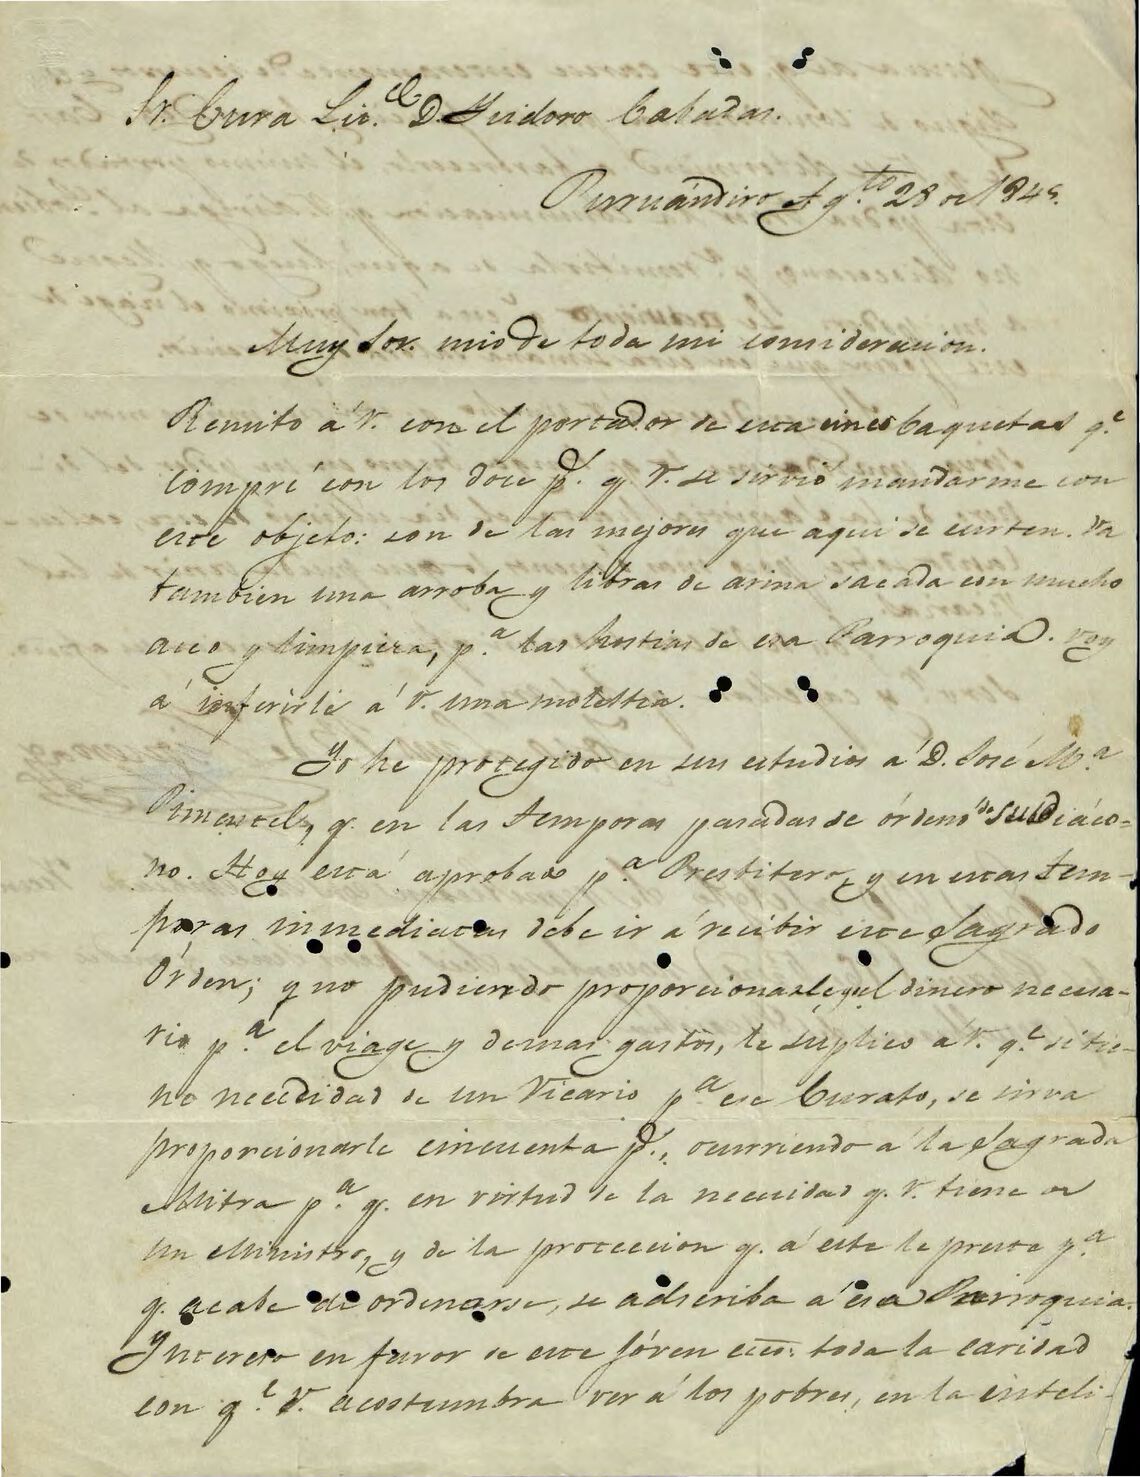 Sr. Cura Lic.do D. Ysidoro Cabadas.
Puruándiro Agto. 28 de 184
Muy Sor. mio de toda mi consideracion.
Remito á V. con el portador de esta cinco baquetas q.e
compré con los doce p.s q. V. se sirvió mandarme con
este objeto: son de las mejores que aqui se curten. Va
tambien una arroba y libras de arina sacada con mucho
aseo y limpieza, p.a las hostias de esa Parroquia. Voy
á inferirle á V. una molestia.
Yo he protegido en sus estudios á D. José M.a
Pimentel, q. en las temporas pasadas se órdenó de Subdiáco=
no. Hoy está aprobado p.a Presbitero, y en estas tem-
poras inmediatas debe ir á recibir este Sagrado
Órden; y no pudiendo proporcionarle yo el dinero necesa-
rio p.a el viage y demas gastos, le suplico á V. q.e si tie-
ne necesidad de un Vicario p.a ese Curato, se sirva
proporcionarle cincuenta p.s, ocurriendo á la Sagrada
Mitra p.a q. en virtud de la necesidad q. V. tiene de
un Ministro, y de la proteccion q. á este le presta p.a
q. acabe de ordenarse, se adscriba á esa Parroquia.
Yntereso en favor de este jóven toda la caridad
con q.e V. acostumbra ver á los pobres, en la inteli-